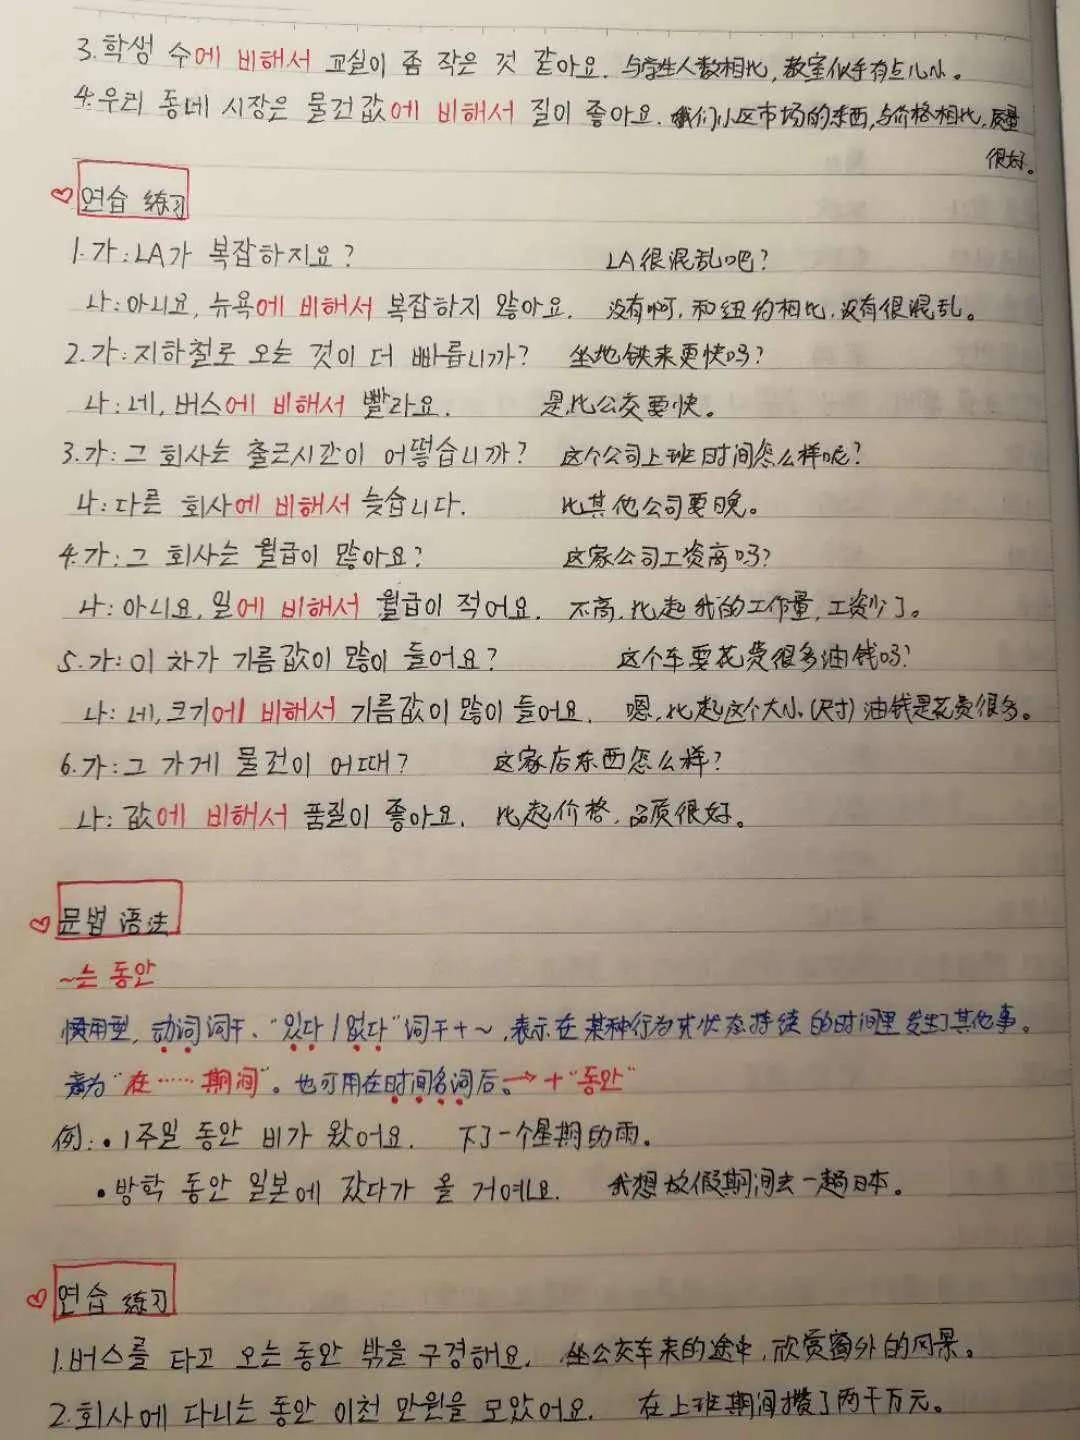 3.학생 수에 비해서 교실이 좀 작은 것 같아요. 与学生人数相比,教室似乎有点儿小。
4.우리 동네 시장은 물건값에 비해서 질이 좋아요. 我们小区市场的东西,与价格相比,质量
很好。
연습 练习
1.가:LA가 복잡하지요? LA很混乱吧?
나:아니요, 뉴욕에 비해서 복잡하지 않아요. 没有啊,和纽约相比,没有很混乱。
2.가:지하철로 오는 것이 더 빠릅니까? 坐地铁来更快吗?
나:네,버스에 비해서 빨라요. 是,比公交要快。
3.가:그 회사는 출근시간이 어떻습니까? 这个公司上班时间怎么样呢?
나:다른 회사에 비해서 늦습니다. 比其他公司要晚。
4.가:그 회사는 월급이 많아요? 这家公司工资高吗?
나:아니요,일에 비해서 월급이 적어요. 不高,比起我的工作量,工资少了。
5.가:이 차가 기름값이 많이 들어요? 这个车要花费很多油钱吗?
나:네,크기에 비해서 기름값이 많이 들어요. 嗯,比起这个大小(尺寸)油钱是花费很多。
6.가:그 가게 물건이 어때? 这家店东西怎么样?
나:값에 비해서 품질이 좋아요. 比起价格,品质很好。
문법 语法
~는 동안
惯用型,动词词干、"있다/없다"词干+~,表示在某种行为或状态持续的时间里发生了其他事。
意为"在……期间"。也可用在时间名词后。→+"동안"
例:•1주일 동안 비가 왔어요. 下了一个星期的雨。
•방학 동안 일본에 갔다가 올 거예요. 我想放假期间去一趟日本。
연습 练习
1.버스를 타고 오는 동안 밖을 구경해요. 坐公交车来的途中,欣赏窗外的风景。
2.회사에 다니는 동안 이천 만원을 모았어요. 在上班期间攒了两千万元。